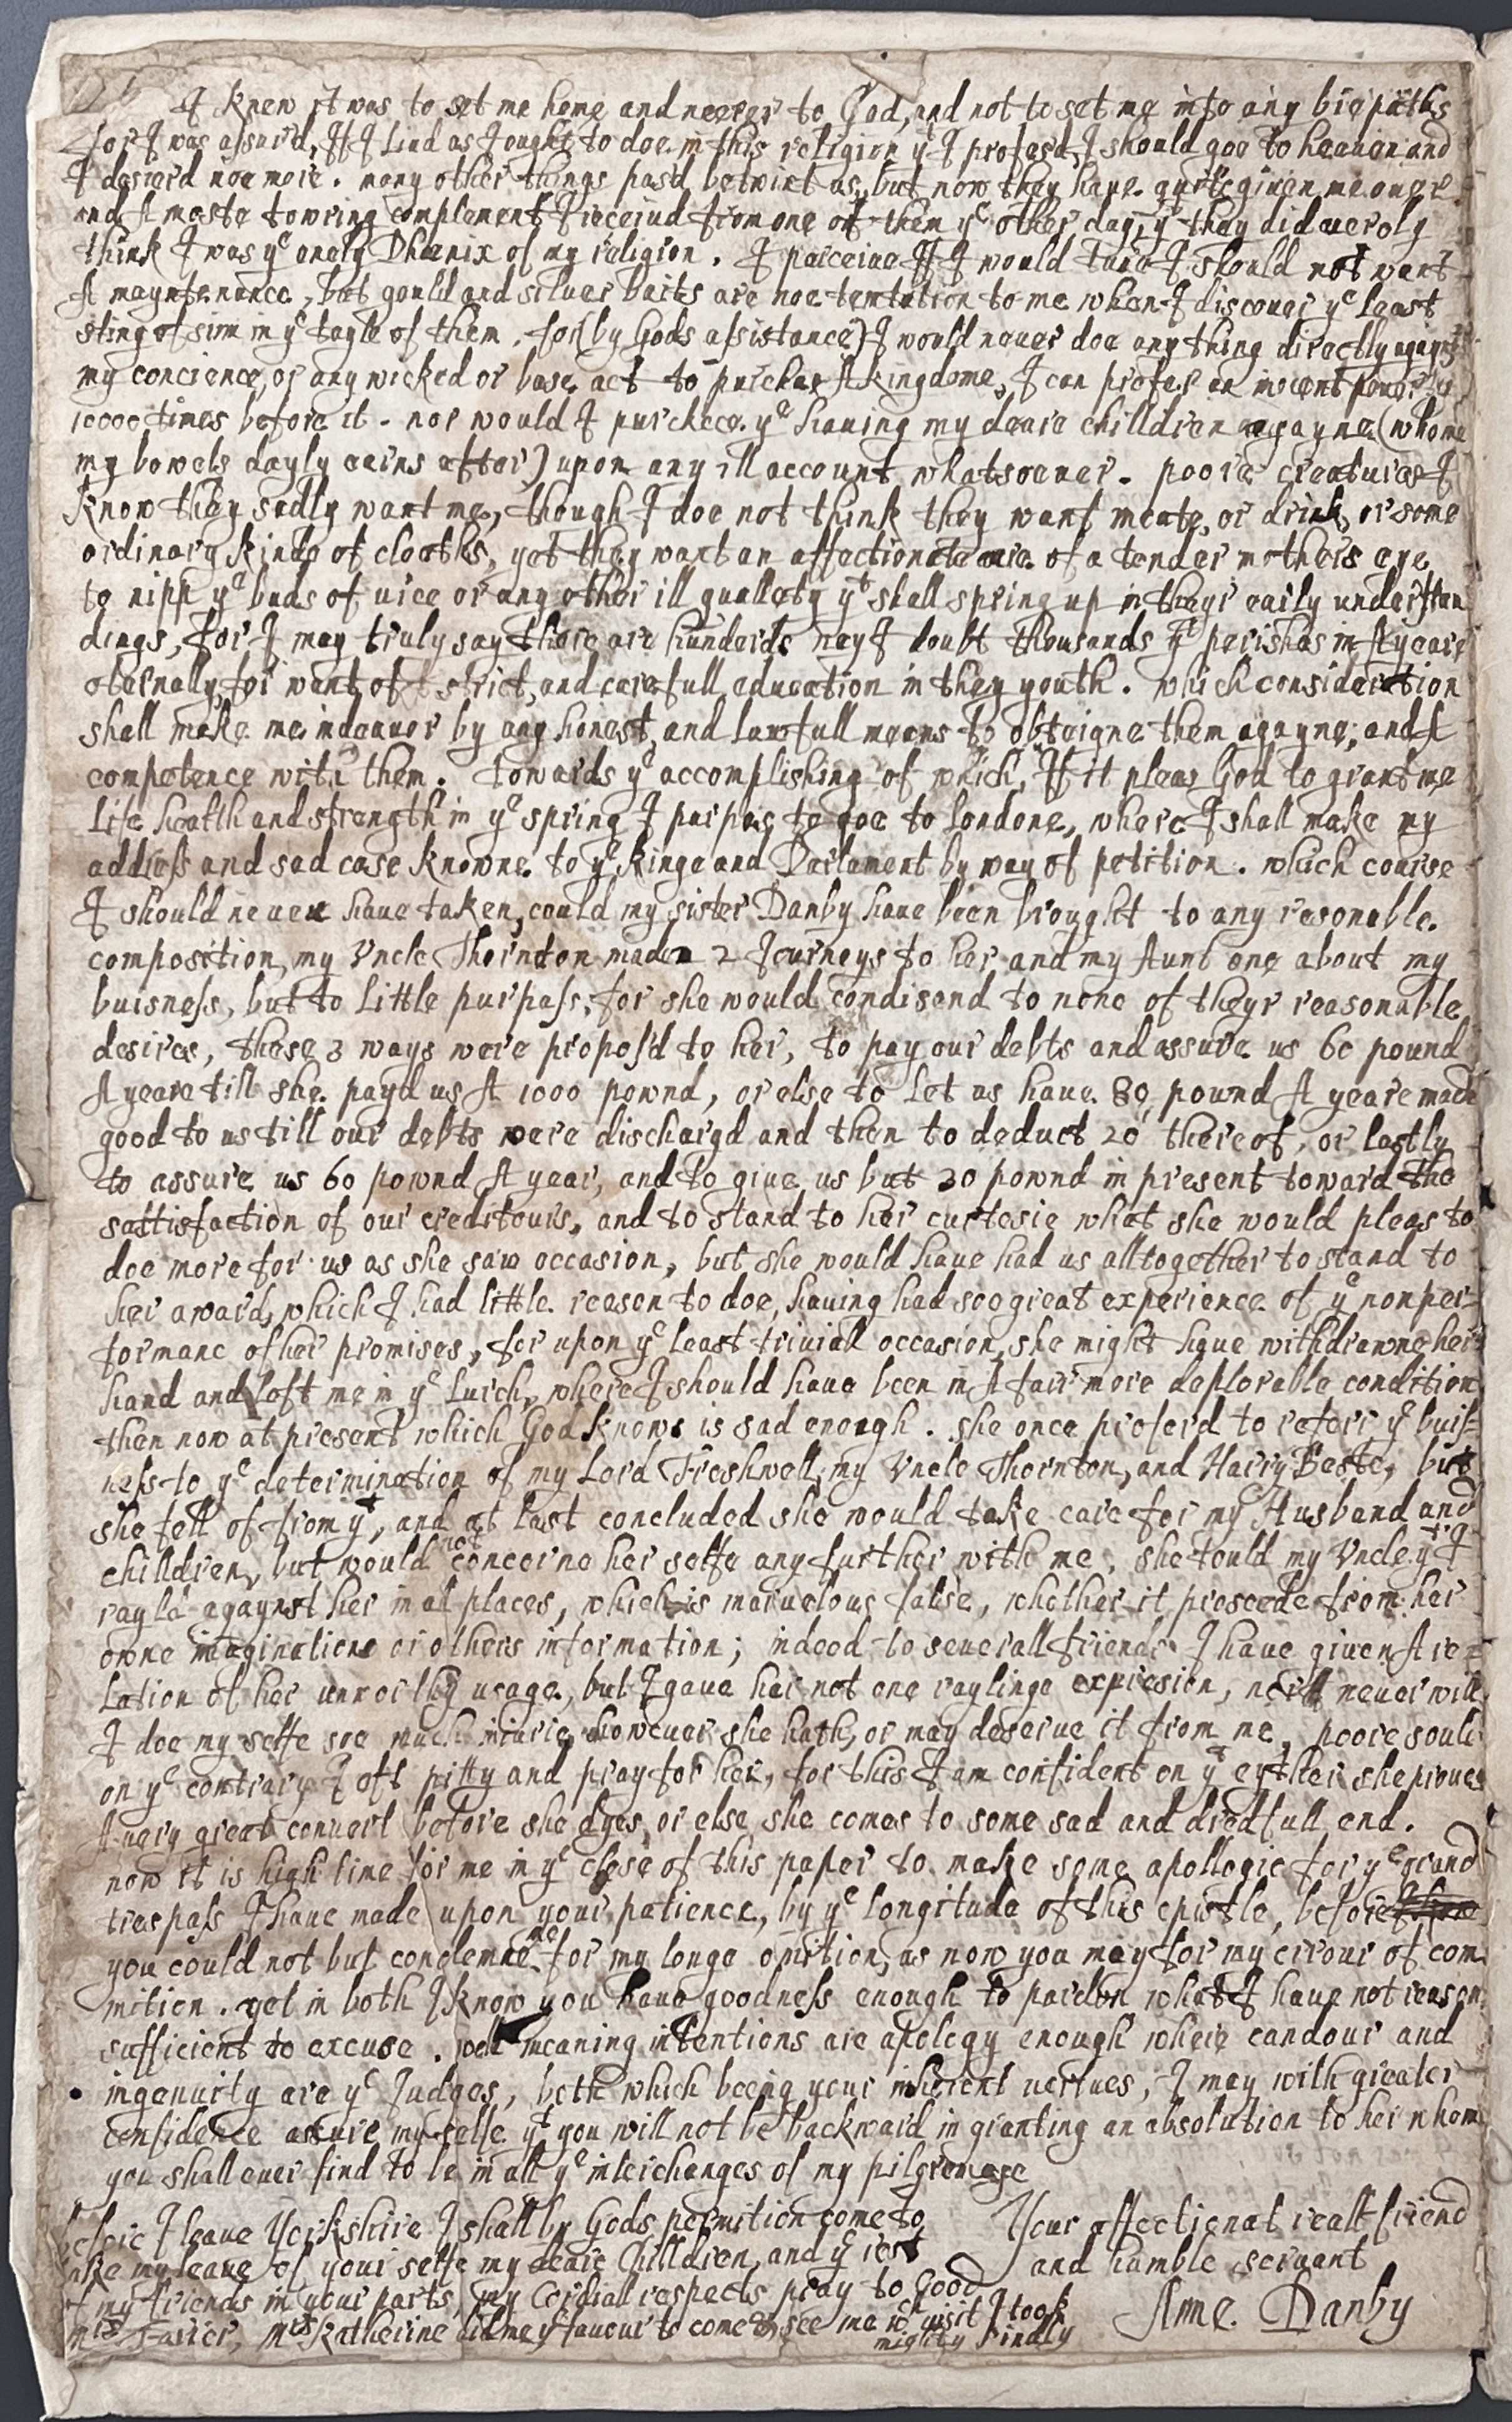 I knew it was to set me home and neerer to God, and not to set me into any bie paths
for I was assur'd, If I liud as I ought to doe in this religion yt I profesd, I should goe to heauen and
I desierd noe more. many other things past betwixt us, but now they haue quite giuen me ouer
and A moste towring complement I receiud from one of them ye other day, yt they did veroly
think I was ye onely Phœnix of my religion. I perceiue If I would turne I should not want
A mayntenance, but gould and siluer baits are noe temtation to me when I discouer ye least
sting of sinn in ye tayle of them. for (by Gods assistance) I would neuer doe any thing directly against
my concience, or any wicked or base act to purchas A kingdome, I can prefer an inocent pouerty
10000 times before it. nor would I purchece ye hauing my deare chilldren agayne (whome
my bowels dayly earns after) upon any ill account whatsoeuer. poore creatures I
know they sadly want me, though I doe not think they want meate, or drink, or some
ordinary kinde of cloaths, yet they want an affectionate care of a tender mothers eye
to nipp ye buds of vice or any other ill quallety yt shall spring up in theyr early understan
dings, for I may truly say there are hunderds nay I doubt thousands yt perishes in A yeare
eternally, for want of A strict, and carefull education in they youth. which consideration
shall make me indeauor by any honest, and lawfull means to obteigne them agayne, and A
competence with them. towards ye accomplishing of which, If it pleas God to grant me
life health and strength in ye spring I purpas to goe to Londone, where I shall make my
address and sad case knowne to ye kinge and Parlament by way of petition. which course
I should neuer haue taken, could my sister Danby haue been brought to any resonable
composition, my Vncle Thornton made 2 Journeys to her and my Aunt one about my
buisness, but to little purpass, for she would condisend to none of theyr reasonable
desires, these 3 ways were propos'd to her, to pay our debts and assure us 60 pound
A yeare till she payd us A 1000 pownd, or else to let us haue 80 pound A yeare made
good to us till our debts were dischargd and then to deduct 20 thereof, or lastly
to assure us 60 pownd A year, and to giue us but 30 pownd in present toward the
sattisfaction of our creditours, and to stand to her curtesie what she would pleas to
doe more for us as she saw occasion, but she would haue had us alltogether to stand to
her award, which I had little reason to doe, hauing had soe great experience of ye nonper=
formanc of her promises, for upon ye least triuiall occasion, she might haue withdrawne her
hand and left me in ye Lurch, where I should haue been in A farr more deplorable condition
then now at present which God knows is sad enough. she once proferd to referr ye buis=
ness to ye determination of my Lord Freshwell, my Vncle Thornton, and Harry Beste, but
she fell of from yt, and at last concluded she would take care for my Husband and
chilldren, but would not concerne her selfe any further with me, she tould my Vncle yt I
rayld agaynst her in al places, which is maruelous false, whether it proscede from her
owne imaginations or others information; indeed to seuerall friends I haue giuen A re=
lation of her unworthy usage, but I gaue her not one raylinge expresion, nor neuer will
I doe my selfe soe much iniurie, howeuer she hath, or may deserue it from me, poore soule
on ye contrary I oft pitty and pray for her, for this I am confident on yt eyther she proues
A uery great conuert before she dyes, or else she comes to some sad and dredfull end.
now it is high time for me in ye close of this paper to make some apollogie for ye grand
trespass I haue made upon your patience, by ye longitude of this epistle, before
you could not but condemne me for my longe omition, as now you may for my errour of com
mition. yet in both I know you haue goodness enough to pardon what I haue not reason
sufficient to excuse. well meaning intentions are apology enough where candour and
ingenuity are ye Judges, both which beeing your inherent uertues, I may with greater
confidence assure my selfe yt you will not be backward in granting an absolution to her whom
you shall euer find to be in all ye interchanges of my pilgremage
Your affectionat reall friend
and humble seruant
Anne Danby
before I leaue Yorkshire I shall by Gods permition come to
take my leaue of your selfe my deare Chilldren, and ye rest
of my friends in your parts, my Cordiall respects pray to Good
Mrs Katherine did me ye fauour to come & see me wch uisit I took
mighty kindly